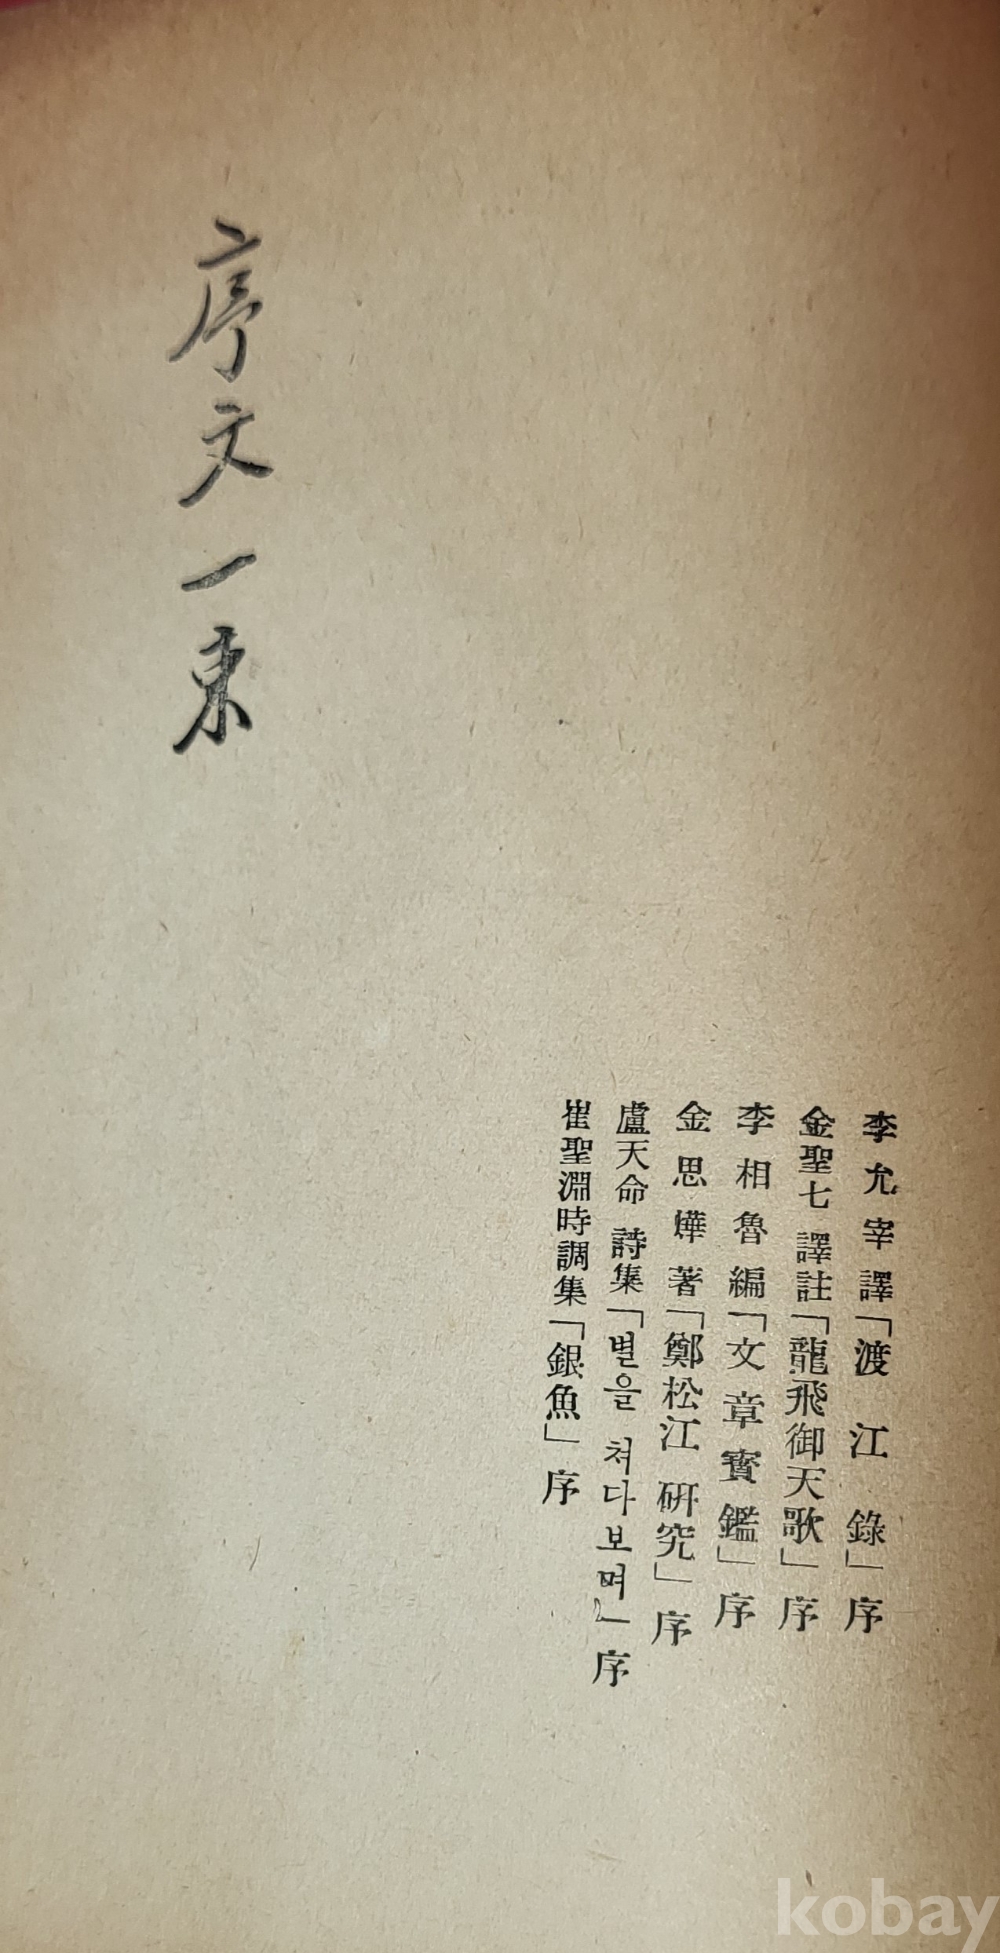 李允宰譯「渡江錄」序
金聖七 譯註「龍飛御天歌」序
李相魯編「文章寶鑑」序
金思燁著「鄭松江 硏究」序
盧天命 詩集「별을 쳐다보며」序
崔聖淵時調集「銀魚」序
序文一束
kobay